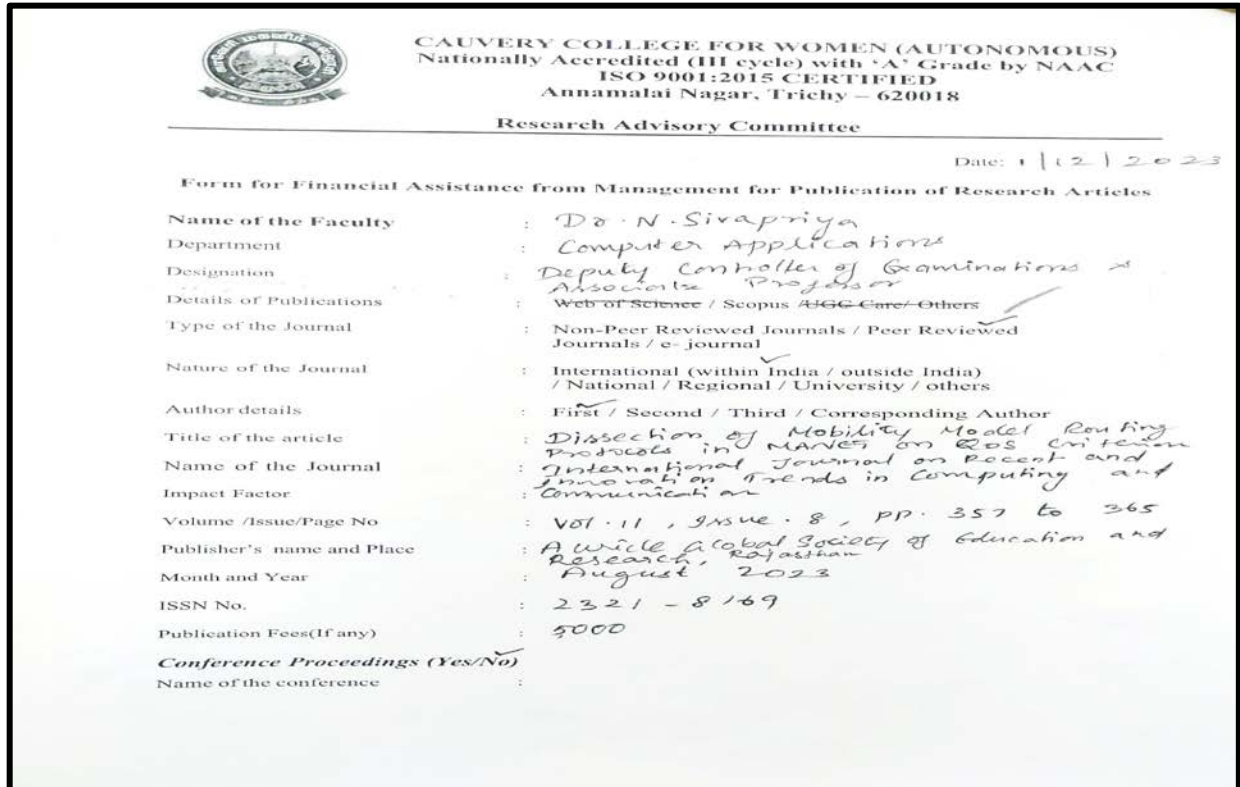 CAUVERY COLLEGE FOR WOMEN (AUTONOMOUS)
Nationally Accredited (III cycle) with ‘A’ Grade by NAAC
ISO 9001:2015 CERTIFIED
Annamalai Nagar, Trichy – 620018
Research Advisory Committee
Date: 1|12|2023
Form for Financial Assistance from Management for Publication of Research Articles
Name of the Faculty : Dr. N. Sivapriya
Department : Computer Applications
Designation : Deputy Controller of Examinations &
Associate Professor
Details of Publications : Web of Science / Scopus /UGC Care/ Others
Type of the Journal : Non-Peer Reviewed Journals / Peer Reviewed
Journals / e- journal
Nature of the Journal : International (within India / outside India)
/ National / Regional / University / others
Author details : First / Second / Third / Corresponding Author
Title of the article : Dissection of Mobility Model Routing
Protocols in MANET on QoS Criterion
Name of the Journal : International Journal on Recent and
Innovation Trends in Computing and
Impact Factor : Communication
Volume /Issue/Page No : Vol. 11, Issue. 8, pp. 357 to 365
Publisher's name and Place : Auricle Global Society of Education and
Research, Rajasthan
Month and Year : August 2023
ISSN No. : 2321 - 8169
Publication Fees(If any) : 5000
Conference Proceedings (Yes/No)
Name of the conference :